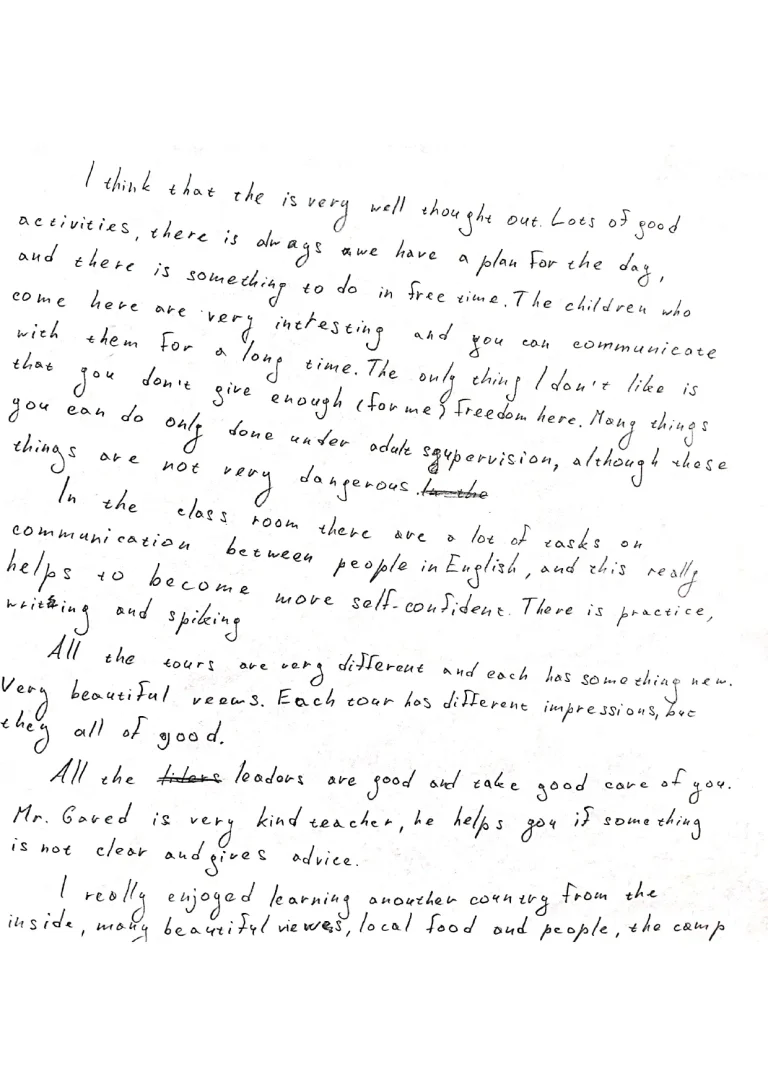 I think that the is very well thought out. Lots of good
activities, there is always we have a plan for the day,
and there is something to do in free time. The children who
come here are very intresting and you can communicate
with them for a long time. The only thing I don't like is
that you don't give enough (for me) freedom here. Many things
you can do only done under adult supervision, although these
things are not very dangerous. In the
In the class room there are a lot of tasks on
communication between people in English, and this really
helps to become more self-confident. There is practice,
writting and spiking
All the tours are very different and each has something new.
Very beautiful veews. Each tour has different impressions, but
they all of good.
All the liders leaders are good and take good care of you.
Mr. Gared is very kind teacher, he helps you if something
is not clear and gives advice.
I really enjoyed learning anouther country from the
inside, many beautiful viewes, local food and people, the camp